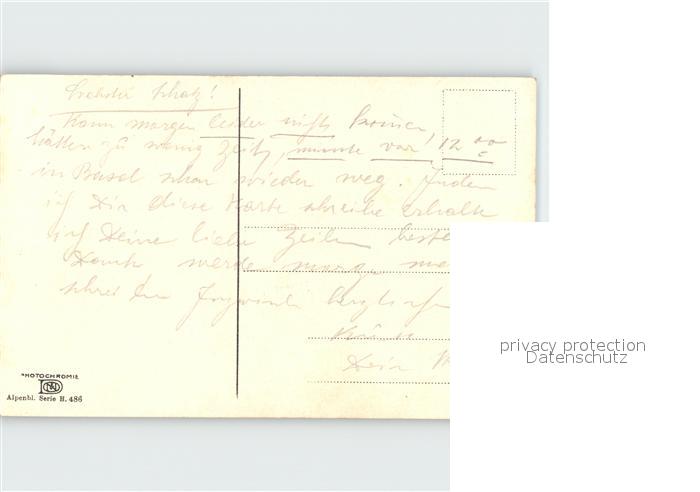 Liebster Schatz!
Kann morgen leider nicht kommen,
hätten zu wenig Zeit, musste vor 12 00
in Basel schon wieder weg. Indem
ich Dir diese Karte schreibe erhalte
ich Deine liebe Zeilen beste
Dank werde morgen
schreiben herzliche
Dein
PHOTOCHROMIE
Alpenbl. Serie H. 486
privacy protection
Datenschutz